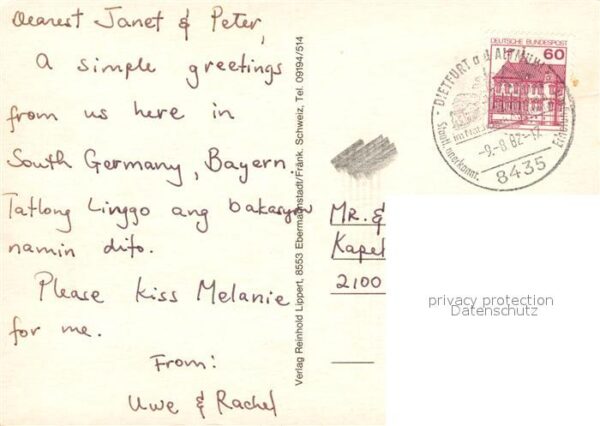 Dearest Janet & Peter,
A simple greetings
from us here in
South Germany, Bayern.
Tatlong Linggo ang bakasyon
namin dito.
Please kiss Melanie
for me.
From:
Uwe & Rachel
Verlag Reinhold Lippert, 8553 Ebermannstadt/Fränk. Schweiz, Tel. 09194/514
DEUTSCHE BUNDESPOST
60
DIETFURT a.d. ALTMÜHL
-9.-8.82-17
8435
Staatl. anerkannt.
MR. &
Kapel
2100
privacy protection
Datenschutz